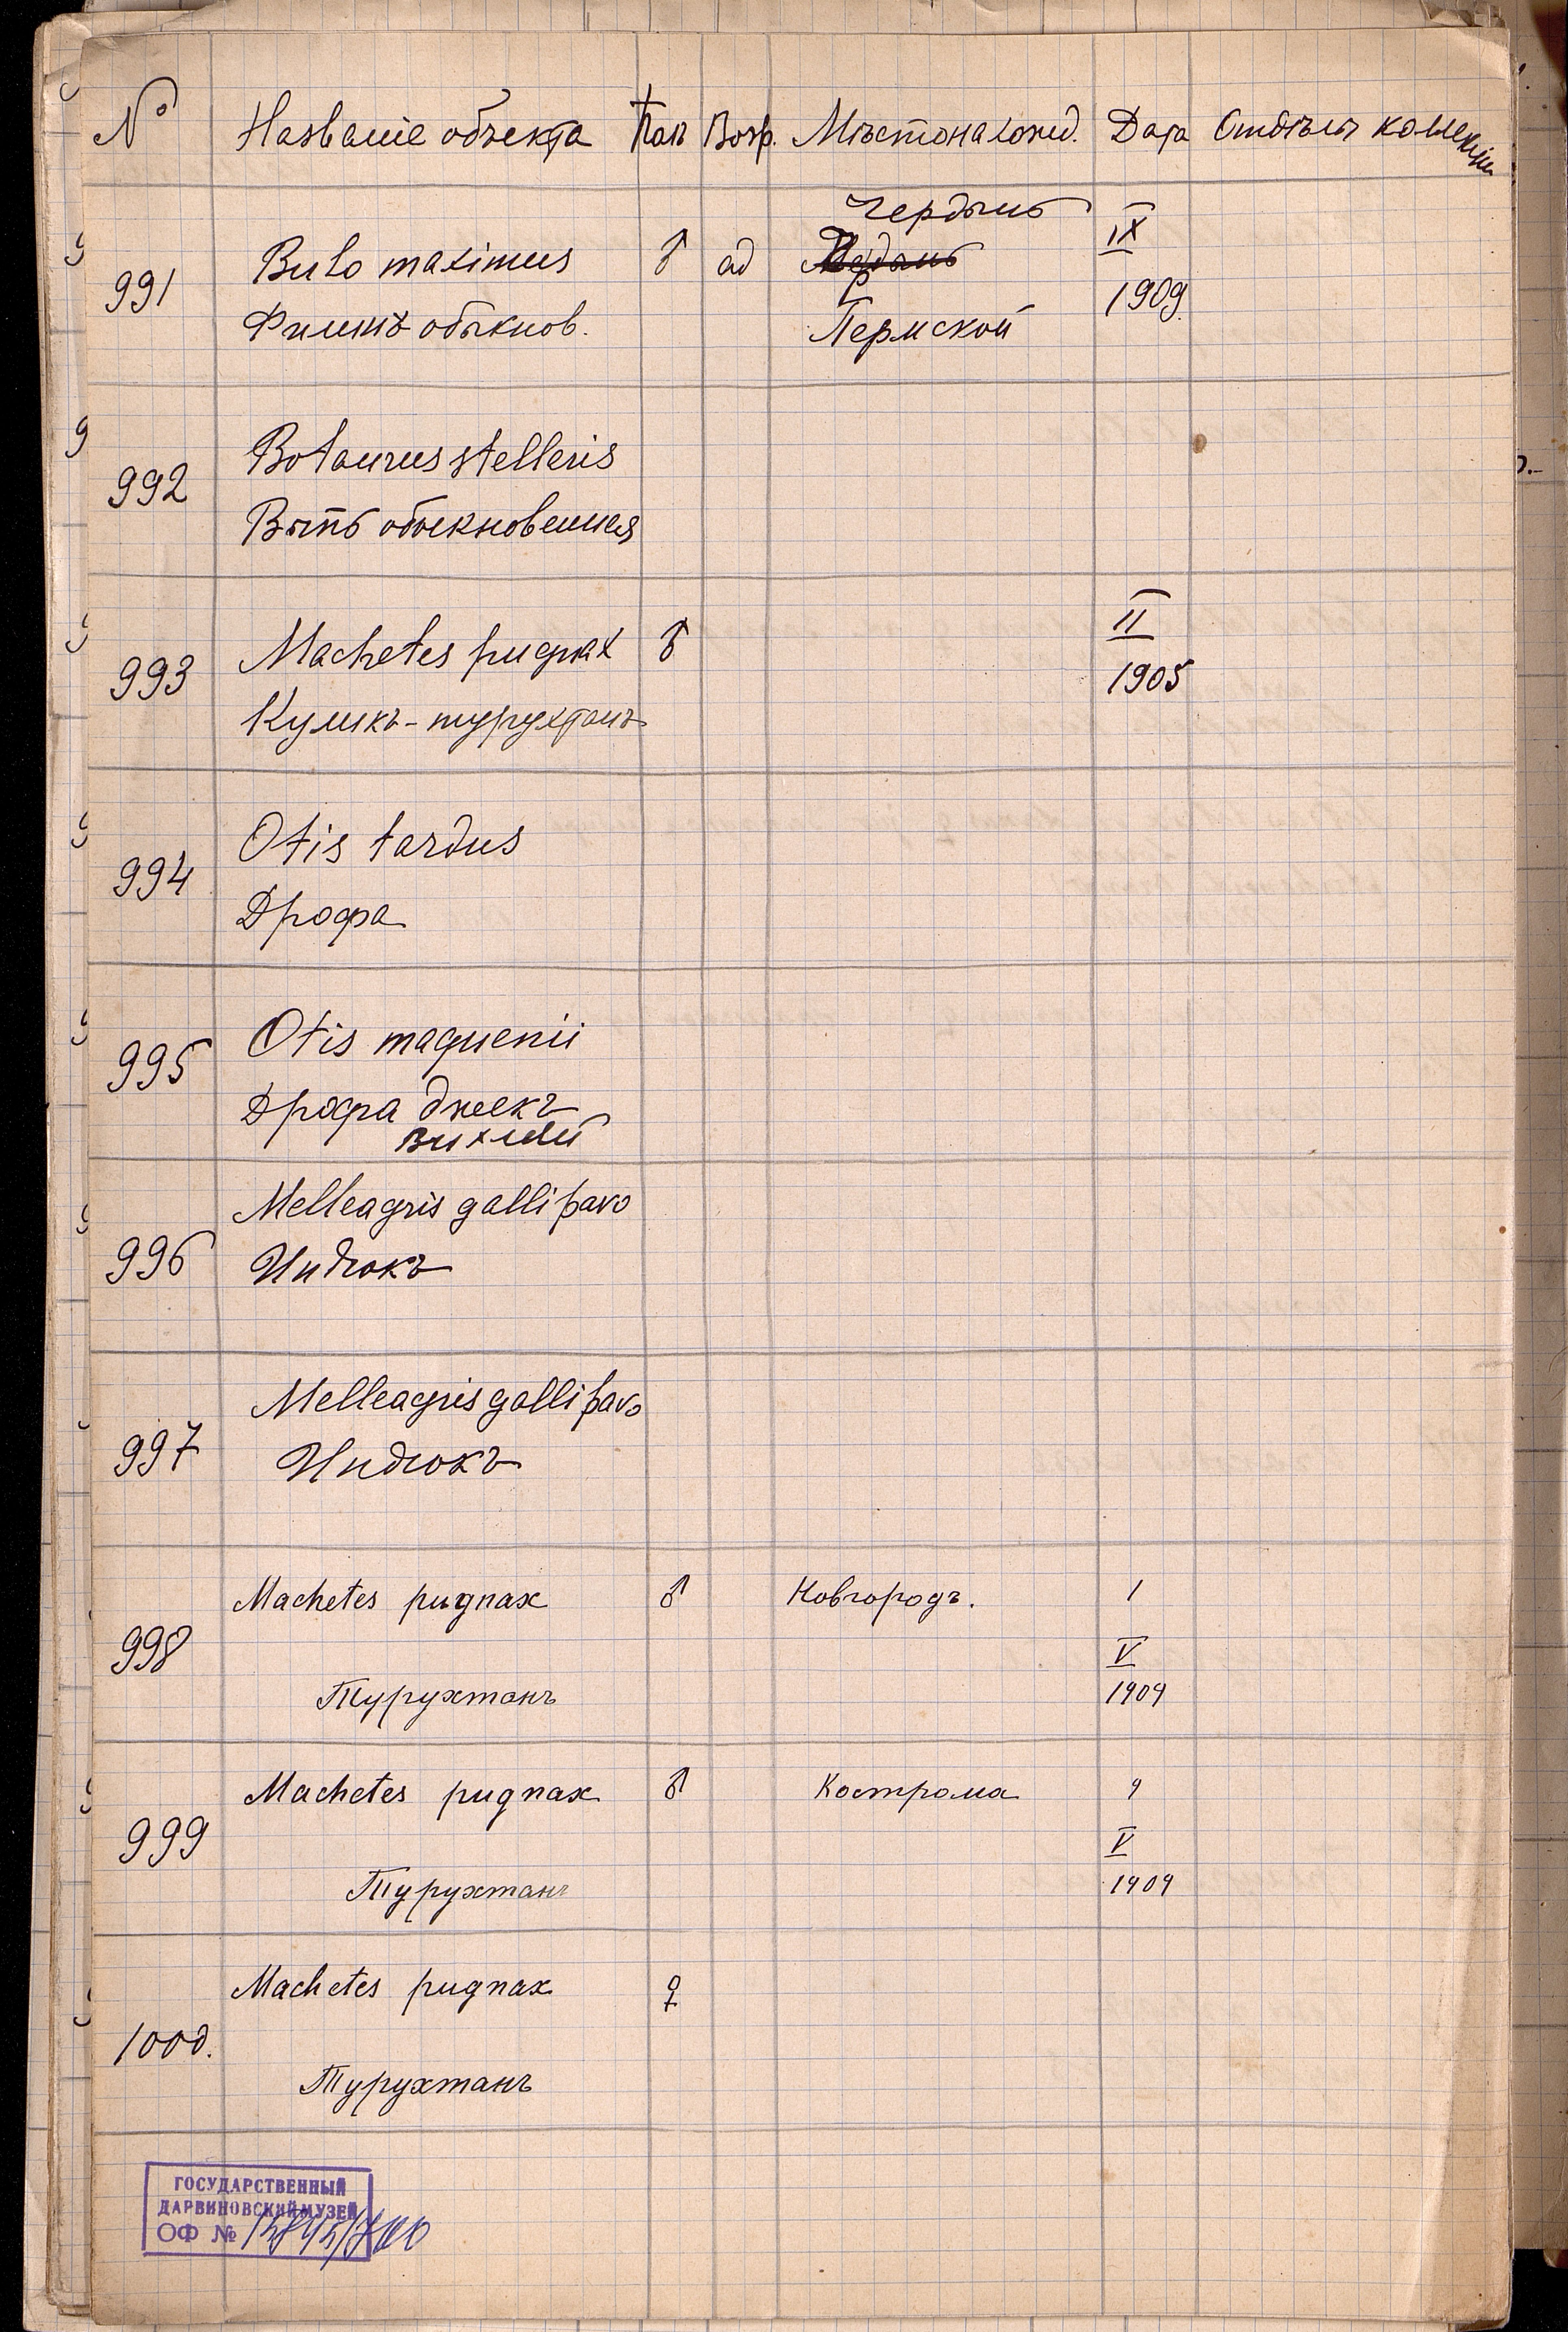 № Названіе объекта Полъ Возр. Мѣстонахожд. Дата Отдѣлъ коллекціи
991 Bubo maximus ♂ ad Чердынь IX 1909.
Филинъ обыкнов. Пермской
992 Botaurus stelleris
Выпь обыкновенная
993 Machetes pugnax ♂ II 1905
Куликъ-турухтанъ
994 Otis tardus
Дрофа
995 Otis maquenii
Дрофа джекъ
вихляй
996 Melleagris gallipavo
Индюкъ
997 Melleagris gallipavo
Индюкъ
998 Machetes pugnax ♂ Новгородъ. 1 V 1909
Турухтанъ
999 Machetes pugnax ♂ Кострома 9 V 1909
Турухтанъ
1000. Machetes pugnax ♀
Турухтанъ
ГОСУДАРСТВЕННЫЙ
ДАРВИНОВСКИЙ МУЗЕЙ
ОФ №